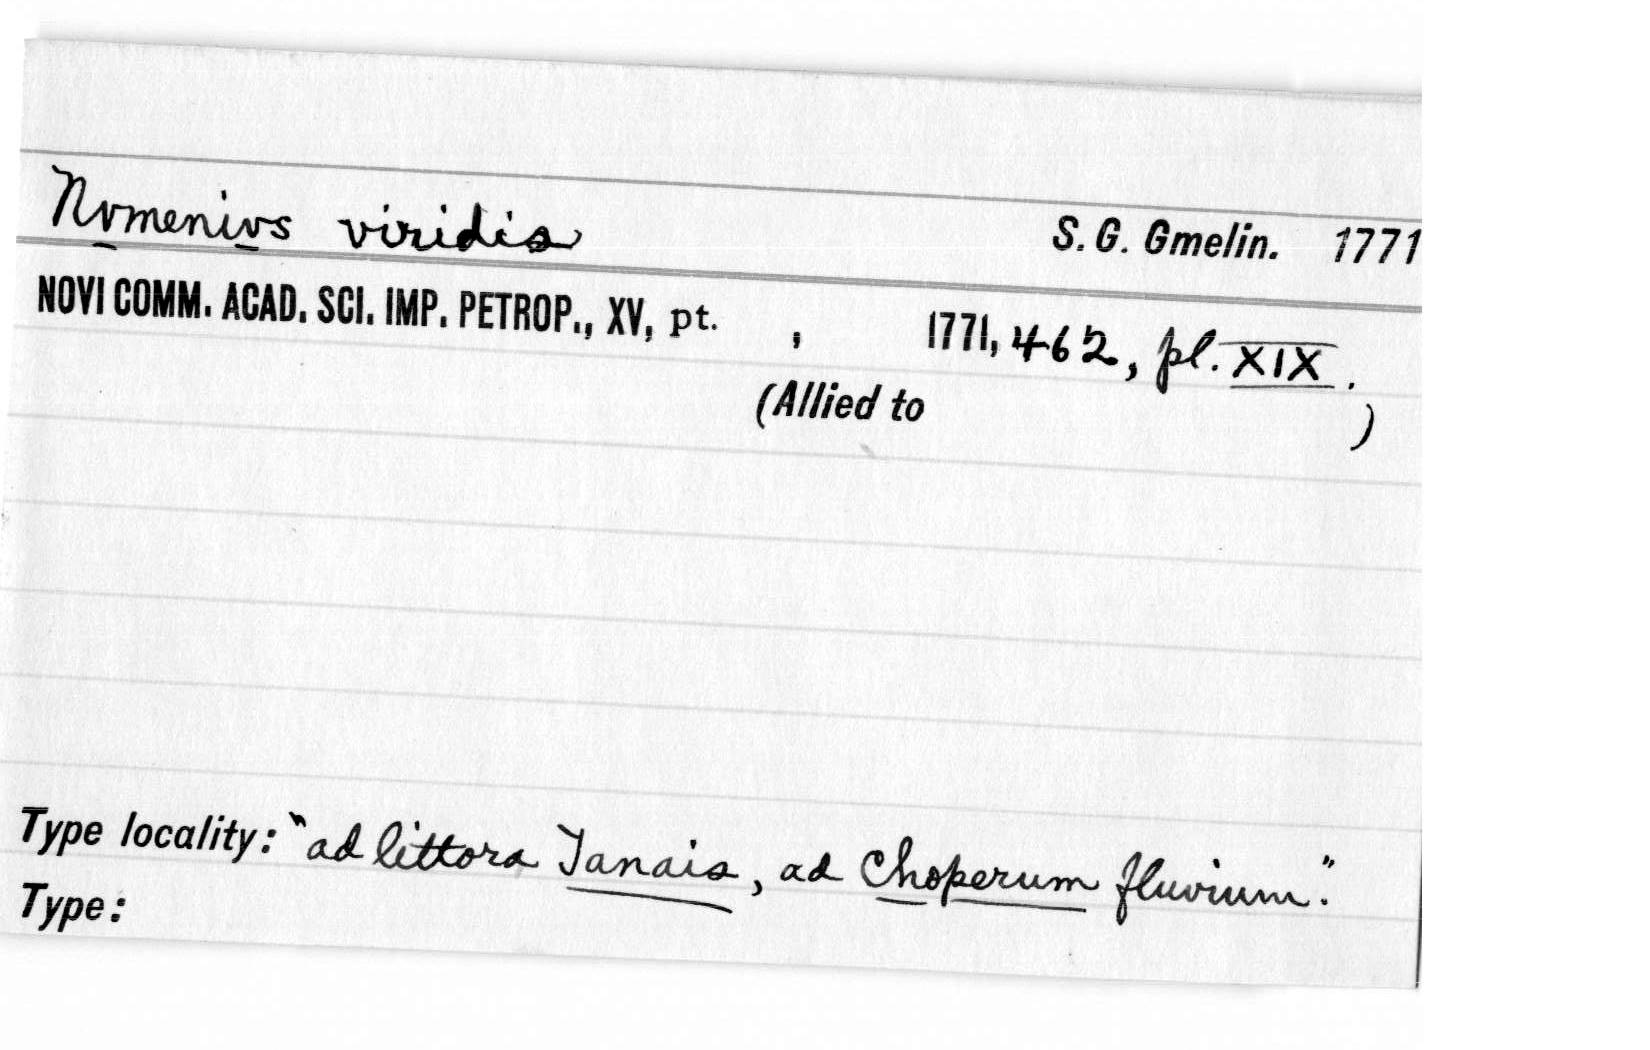 Nvmenivs viridis S. G. Gmelin. 1771
NOVI COMM. ACAD. SCI. IMP. PETROP., XV, pt. , 1771, 462, pl. XIX.
(Allied to )
Type locality: "ad littora Tanais, ad Choperum fluvium."
Type: